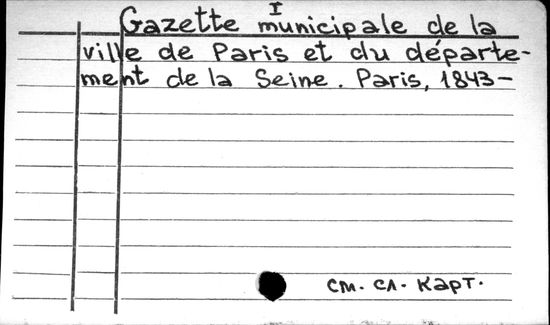 I
Gazette municipale de la
ville de Paris et du départe-
ment de la Seine. Paris, 1843-
см. сл. карт.